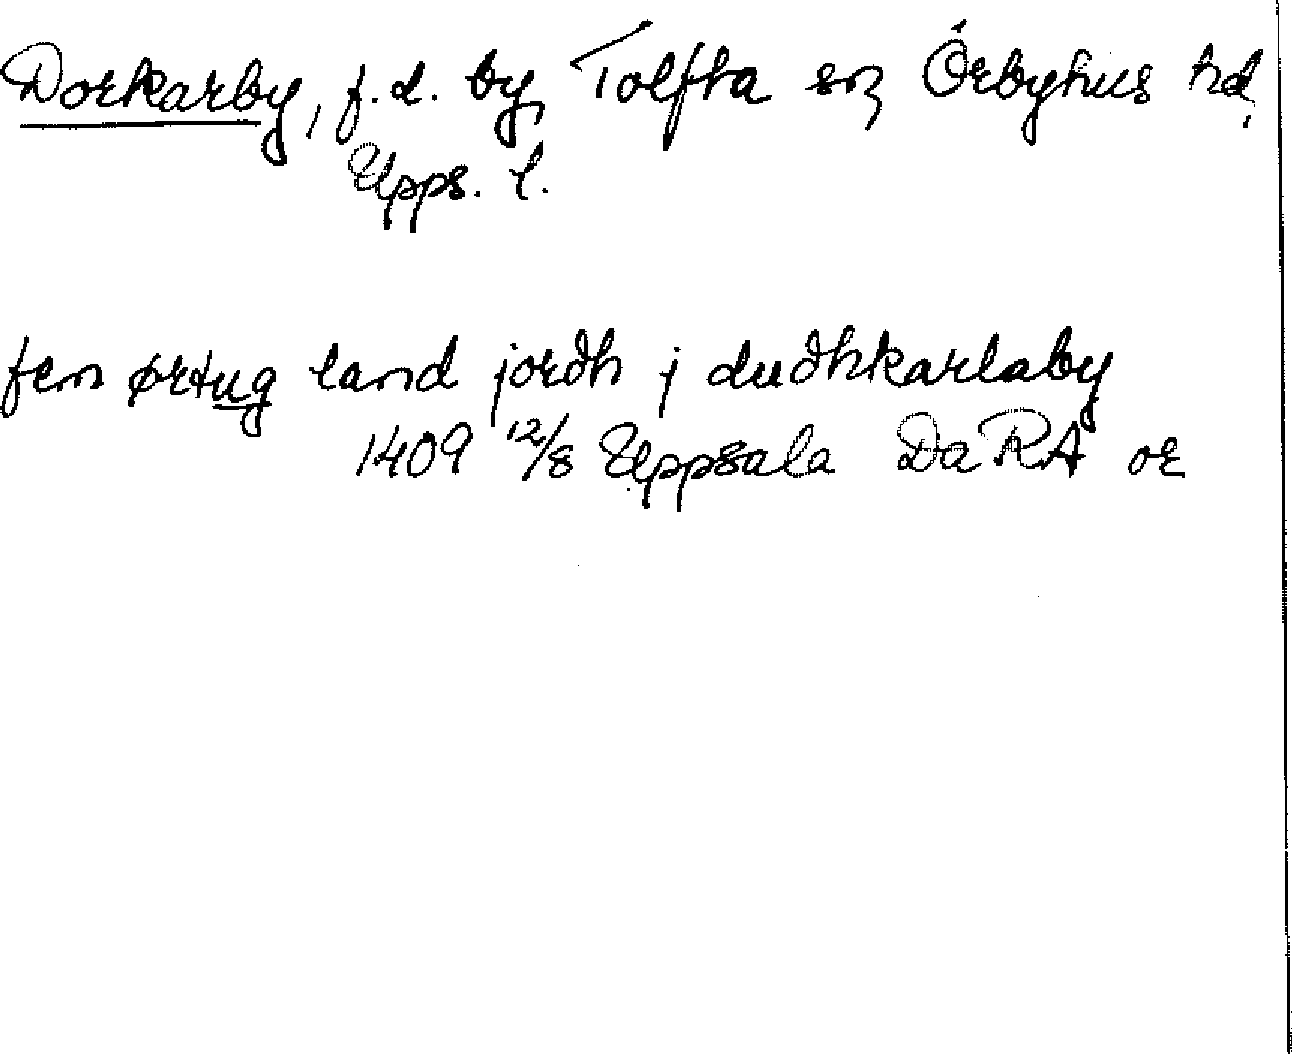 Dorkarby, f.d. by, Tolfta sn, Örbyhus hd,
Upps. l.
fem ørtug land jordh j dudhkarlaby
1409 12/8 Uppsala Da RA or